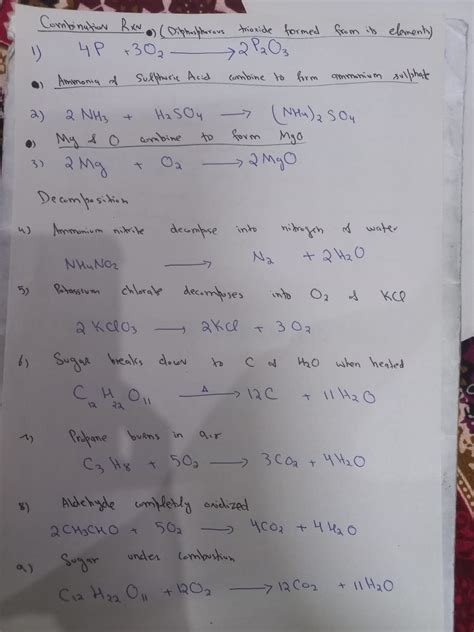 Combination Rxn •) (Diphosphorous trioxide formed from its elements)
1) 4P + 3O₂ ⟶ 2P₂O₃
•) Ammonia & Sulphuric Acid combine to form ammonium sulphate
2) 2NH₃ + H₂SO₄ ⟶ (NH₄)₂SO₄
•) Mg & O combine to form MgO
3) 2Mg + O₂ ⟶ 2MgO
Decomposition
4) Ammonium nitrite decompose into nitrogen & water
NH₄NO₂ ⟶ N₂ + 2H₂O
5) Potassium chlorate decomposes into O₂ & KCl
2KClO₃ ⟶ 2KCl + 3O₂
6) Sugar breaks down to C & H₂O when heated
C₁₂H₂₂O₁₁ ⟶ Δ 12C + 11H₂O
7) Propane burns in air
C₃H₈ + 5O₂ ⟶ 3CO₂ + 4H₂O
8) Aldehyde completely oxidized
2CH₃CHO + 5O₂ ⟶ 4CO₂ + 4H₂O
9) Sugar under combustion
C₁₂H₂₂O₁₁ + 12O₂ ⟶ 12CO₂ + 11H₂O